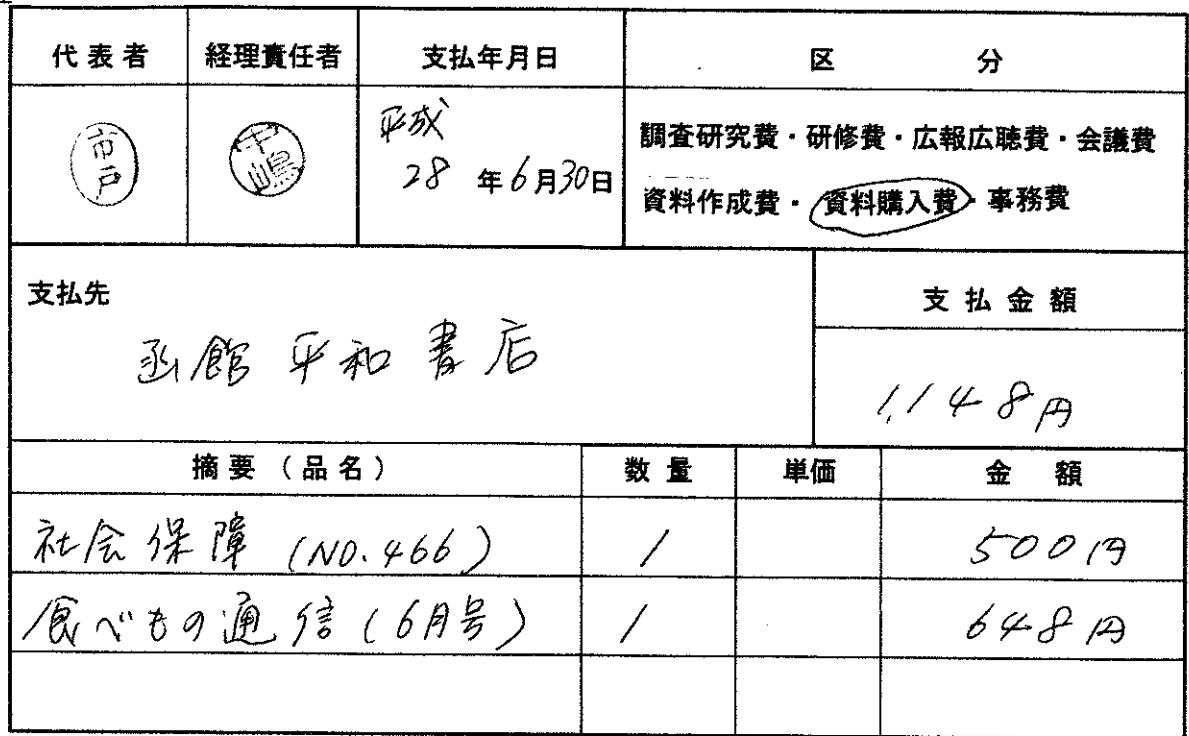 代表者 経理責任者 支払年月日 区 分
市戸 中嶋 平成 28 年6月30日 調査研究費・研修費・広報広聴費・会議費
資料作成費・資料購入費・事務費
支払先 支払金額
函館平和書店 1,148円
摘要(品名) 数量 単価 金額
社会保障 (NO.466) 1 500円
食べもの通信 (6月号) 1 648円